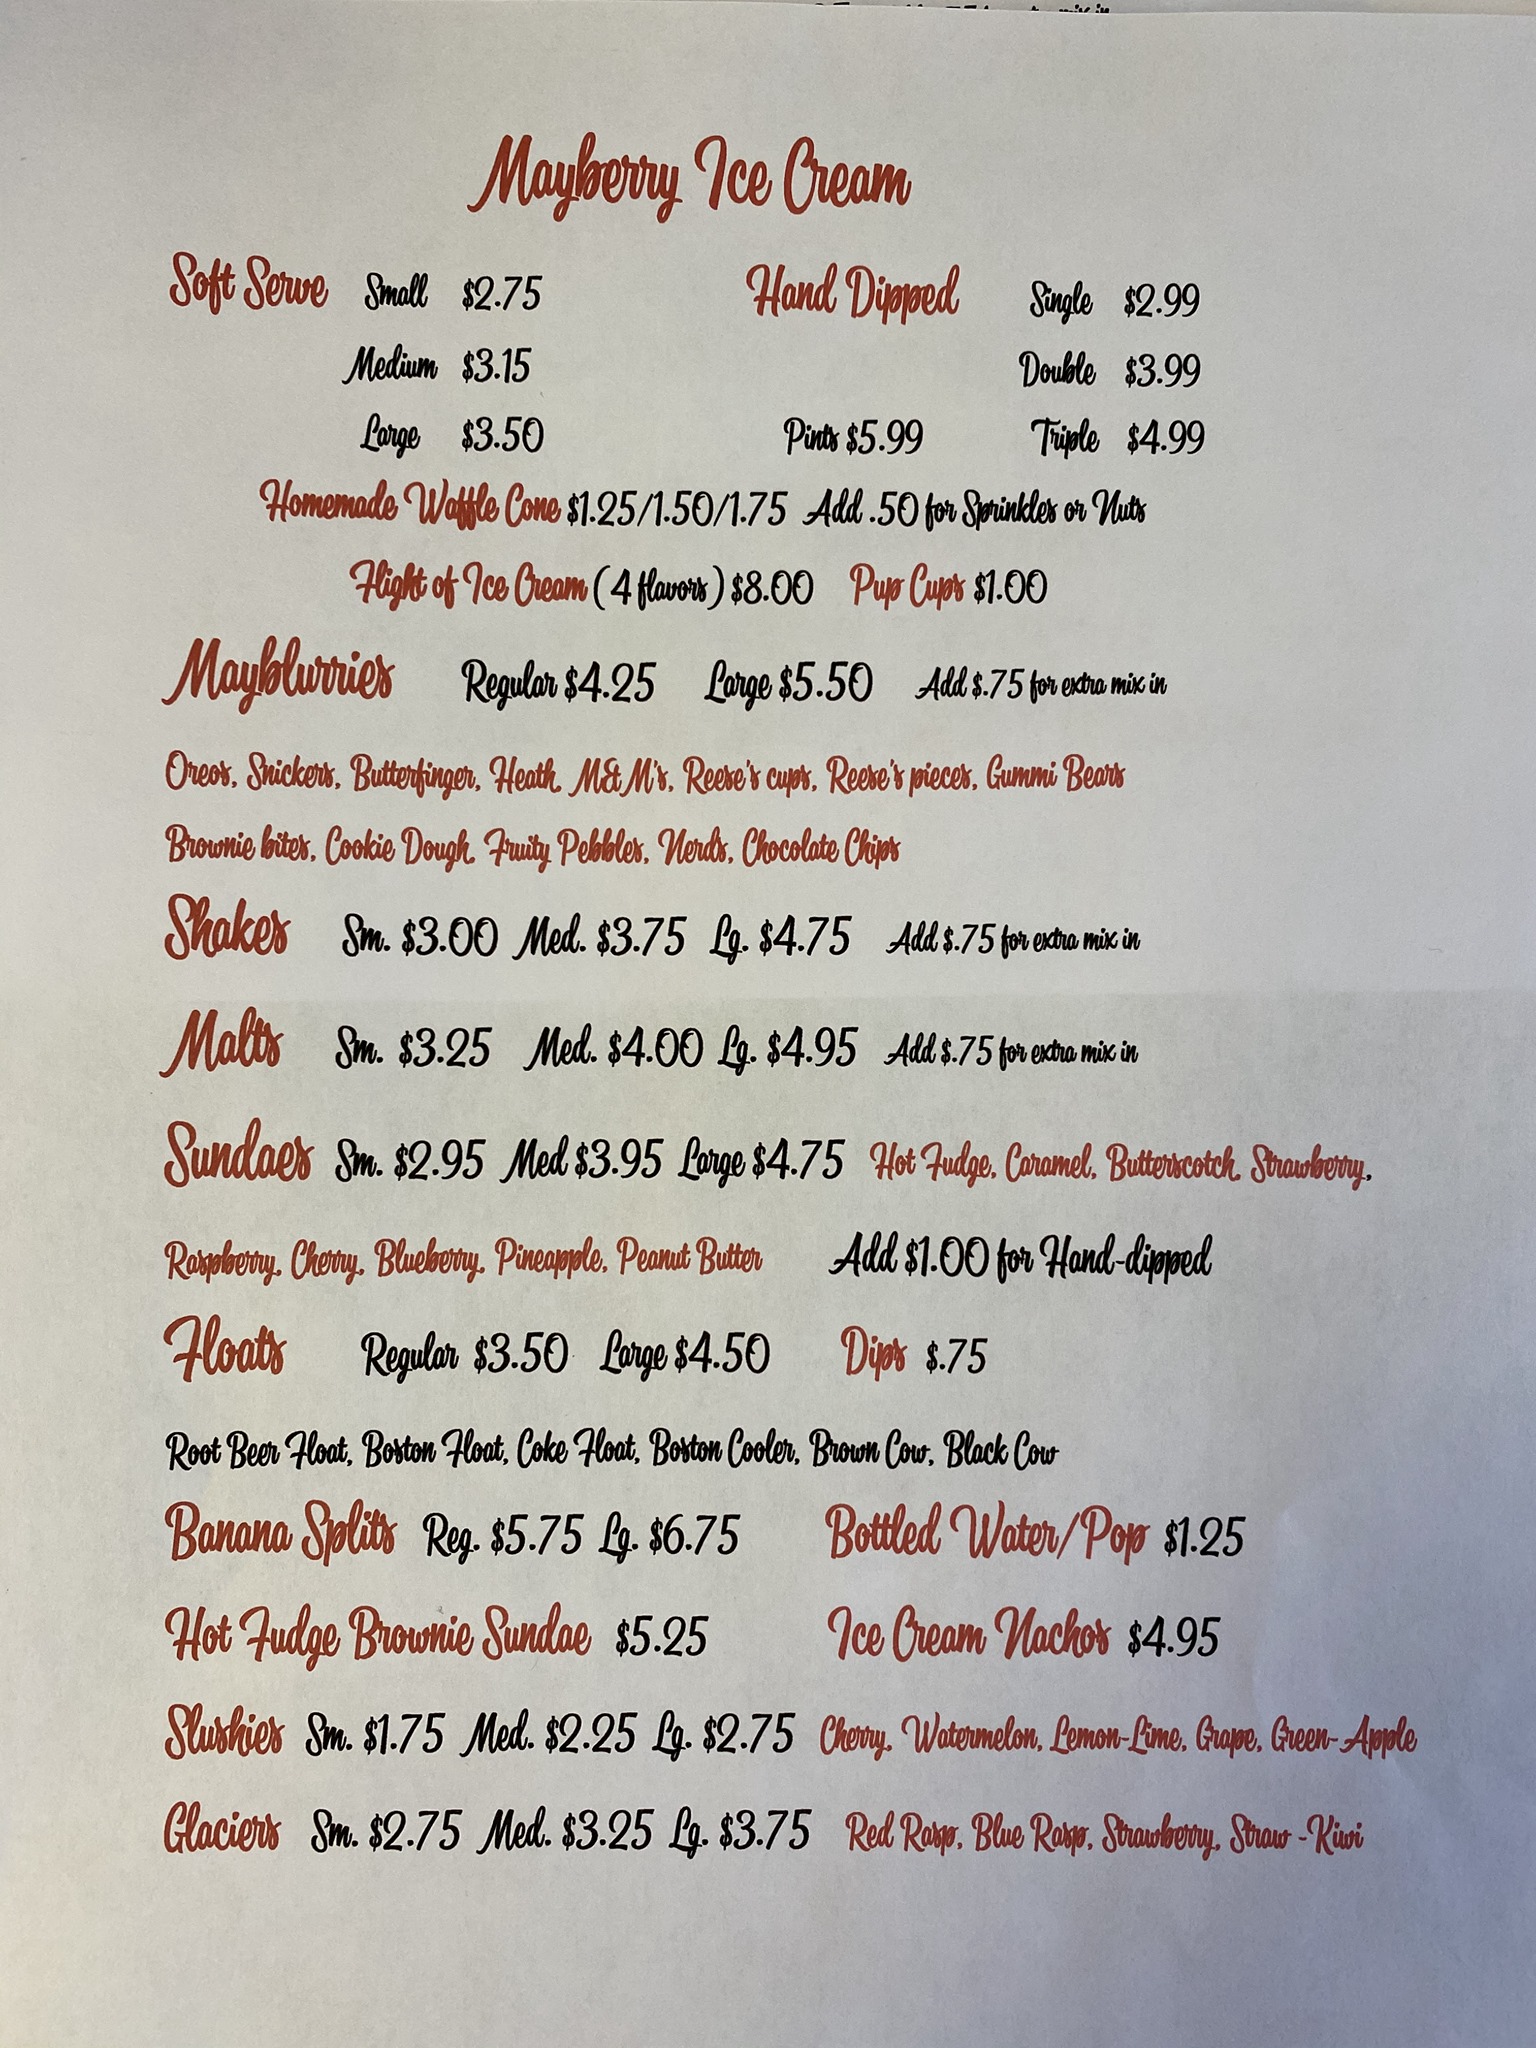 Mayberry Ice Cream
Soft Serve Small $2.75 Hand Dipped Single $2.99
Medium $3.15 Double $3.99
Large $3.50 Pints $5.99 Triple $4.99
Homemade Waffle Cone $1.25/1.50/1.75 Add .50 for Sprinkles or Nuts
Flight of Ice Cream ( 4 flavors ) $8.00 Pup Cups $1.00
Mayblurries Regular $4.25 Large $5.50 Add $.75 for extra mix in
Oreos, Snickers, Butterfinger, Heath, M&M's, Reese's cups, Reese's pieces, Gummi Bears
Brownie bites, Cookie Dough, Fruity Pebbles, Nerds, Chocolate Chips
Shakes Sm. $3.00 Med. $3.75 Lg. $4.75 Add $.75 for extra mix in
Malts Sm. $3.25 Med. $4.00 Lg. $4.95 Add $.75 for extra mix in
Sundaes Sm. $2.95 Med $3.95 Large $4.75 Hot Fudge, Caramel, Butterscotch, Strawberry,
Raspberry, Cherry, Blueberry, Pineapple, Peanut Butter Add $1.00 for Hand-dipped
Floats Regular $3.50 Large $4.50 Dips $.75
Root Beer Float, Boston Float, Coke Float, Boston Cooler, Brown Cow, Black Cow
Banana Splits Reg. $5.75 Lg. $6.75 Bottled Water/Pop $1.25
Hot Fudge Brownie Sundae $5.25 Ice Cream Nachos $4.95
Slushies Sm. $1.75 Med. $2.25 Lg. $2.75 Cherry, Watermelon, Lemon-Lime, Grape, Green-Apple
Glaciers Sm. $2.75 Med. $3.25 Lg. $3.75 Red Rasp, Blue Rasp, Strawberry, Straw -Kiwi